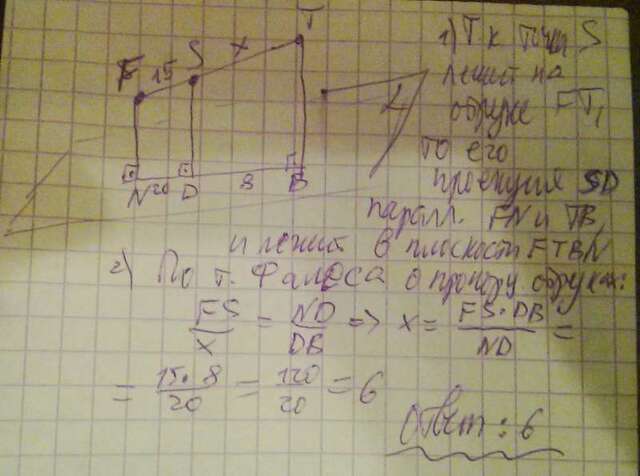 T
S
x
F 15
N 20 D 8 B
L
1) Тк точка S
лежит на
отрезке FT,
то его
проекция SD
паралл. FN и TB
и лежит в плоскости FTBN
2) По т. Фалеса о пропор. отрезках:
FS/x = ND/DB => x = FS·DB/ND =
= 15·8/20 = 120/20 = 6
Ответ: 6